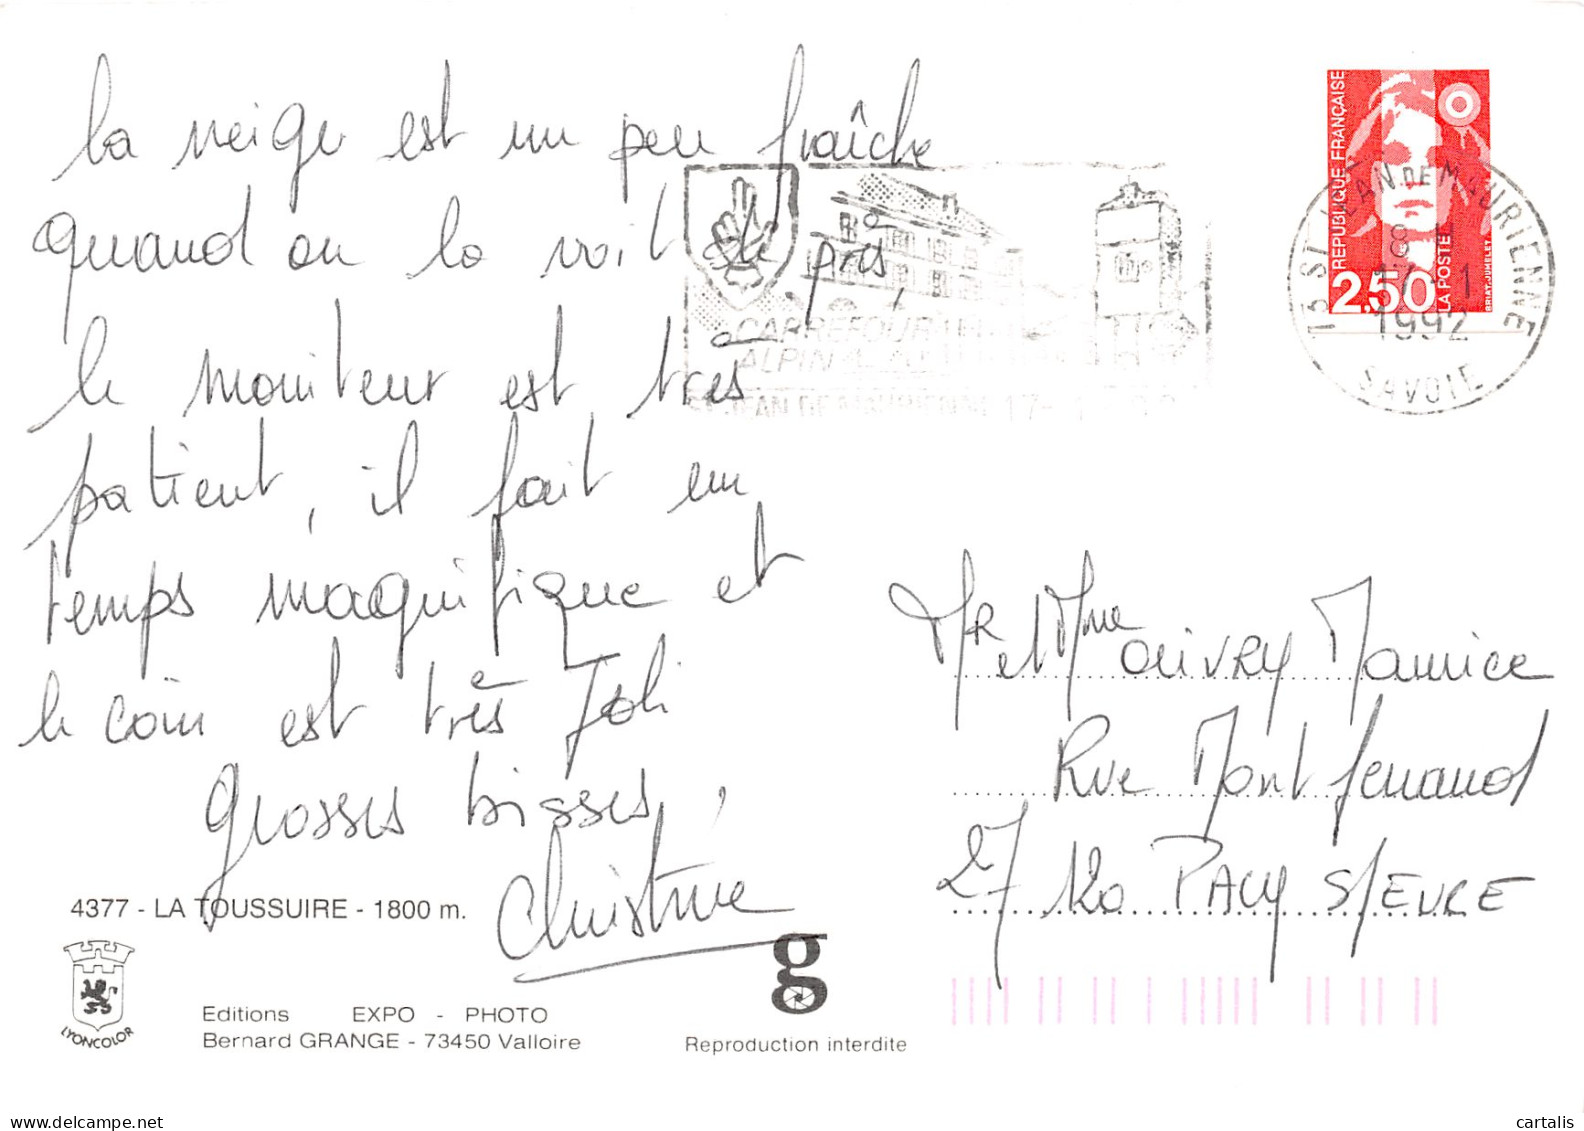 la neige est un peu fraîche
quand on la voit de près,
le moniteur est très
patient, il fait un
temps magnifique et
le coin est très Joli
grosses bisses,
Christine
REPUBLIQUE FRANÇAISE
2,50
LA POSTE
BRIAT-JUMELET
73 ST JEAN DE MAURIENNE
18 H
17 - 1
1992
SAVOIE
CARREFOUR
ST JEAN DE MAURIENNE
Mr et Mme OLIVRY Maurice
Rue Mont ferrand
27 120 PACY S/EURE
4377 - LA TOUSSUIRE - 1800 m.
LYONCOLOR
Editions EXPO - PHOTO
Bernard GRANGE - 73450 Valloire
g
Reproduction interdite
delcampe.net
cartalis